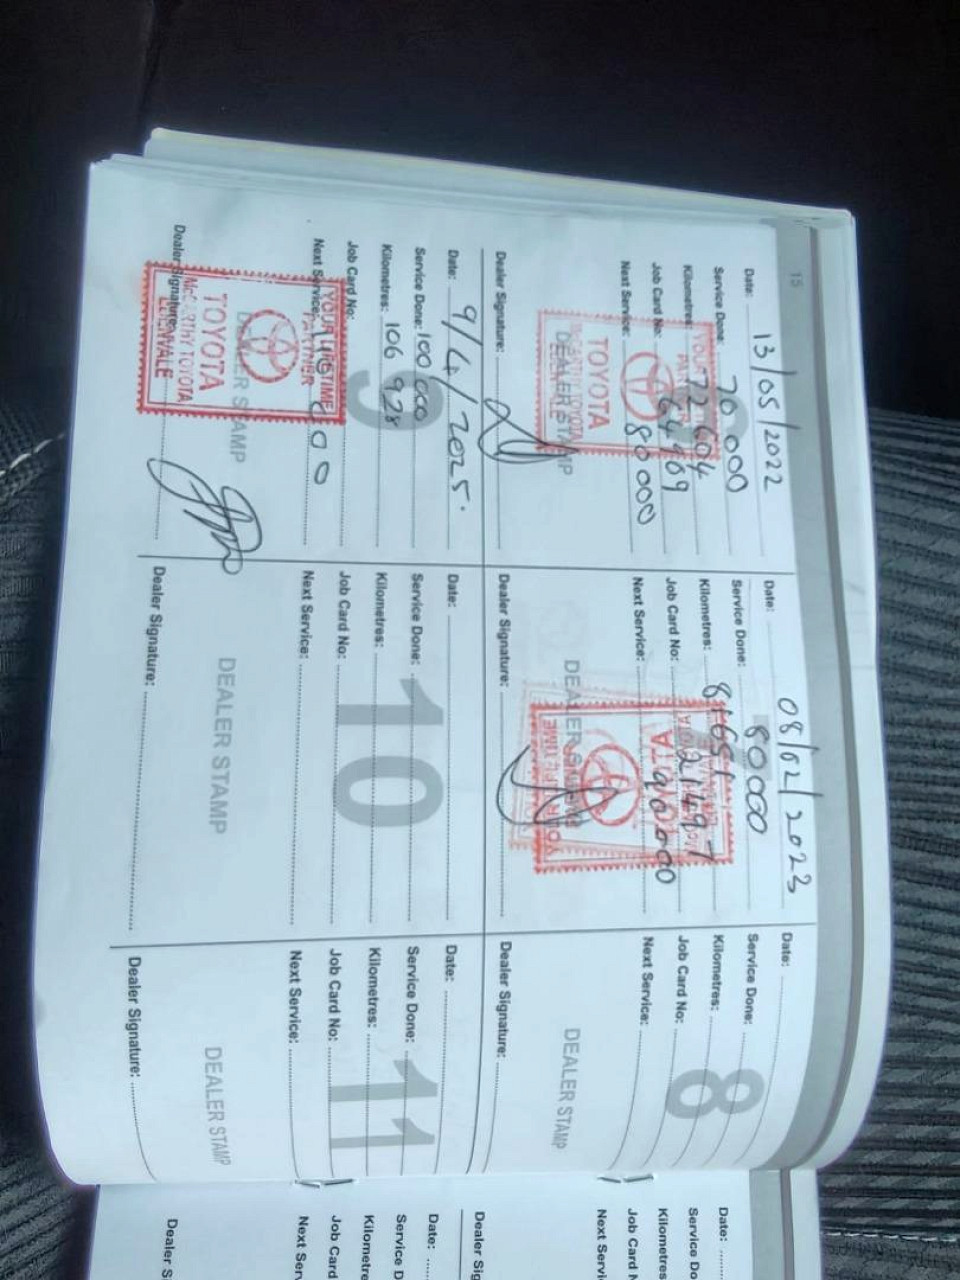 15
Date: 13/05/2022
Service Done: 70 000
Kilometres: 72 604
Job Card No: 64969
Next Service: 80 000
TOYOTA
DEALER STAMP
Dealer Signature:
Date: 08/02/2023
Service Done: 80000
Kilometres: 81651
Job Card No: 21497
Next Service: 90000
DEALER STAMP
Dealer Signature:
8
Date:
Service Done:
Kilometres:
Job Card No:
Next Service:
DEALER STAMP
Dealer Signature:
9
Date: 9/4/2025.
Service Done: 100 000
Kilometres: 106 928
Job Card No:
YOUR LIFETIME
PARTNER
Next Service:
DEALER STAMP
TOYOTA
McCARTHY TOYOTA
Dealer Signature:
10
Date:
Service Done:
Kilometres:
Job Card No:
Next Service:
DEALER STAMP
Dealer Signature:
11
Date:
Service Done:
Kilometres:
Job Card No:
Next Service:
DEALER STAMP
Dealer Signature:
Date:
Service Do
Kilometres
Job Card N
Next Servi
Dealer Sig
Date:
Service D
Kilometre
Job Card
Next Serv
Dealer S